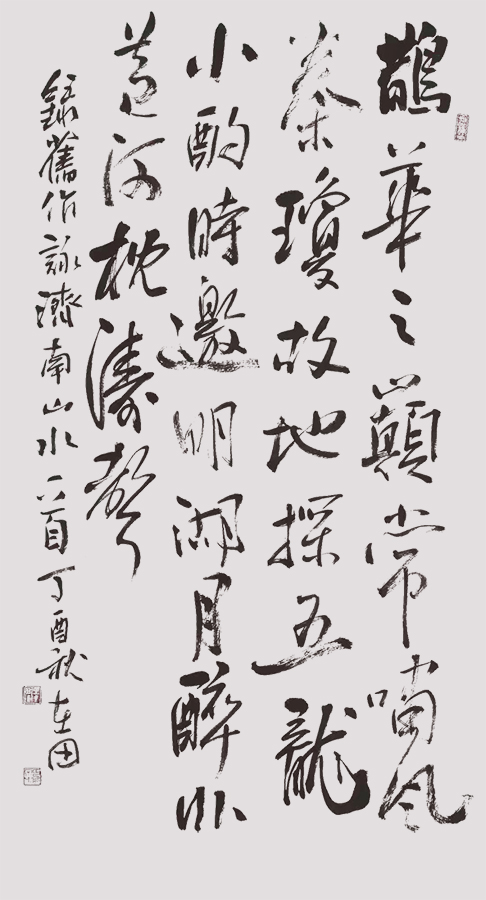 鵲華之巔常嘯風
秦瓊故地探五龍
小酌時邀明湖月醉卧
黃河枕濤聲
錄舊作詠濟南山水一首丁酉秋在田